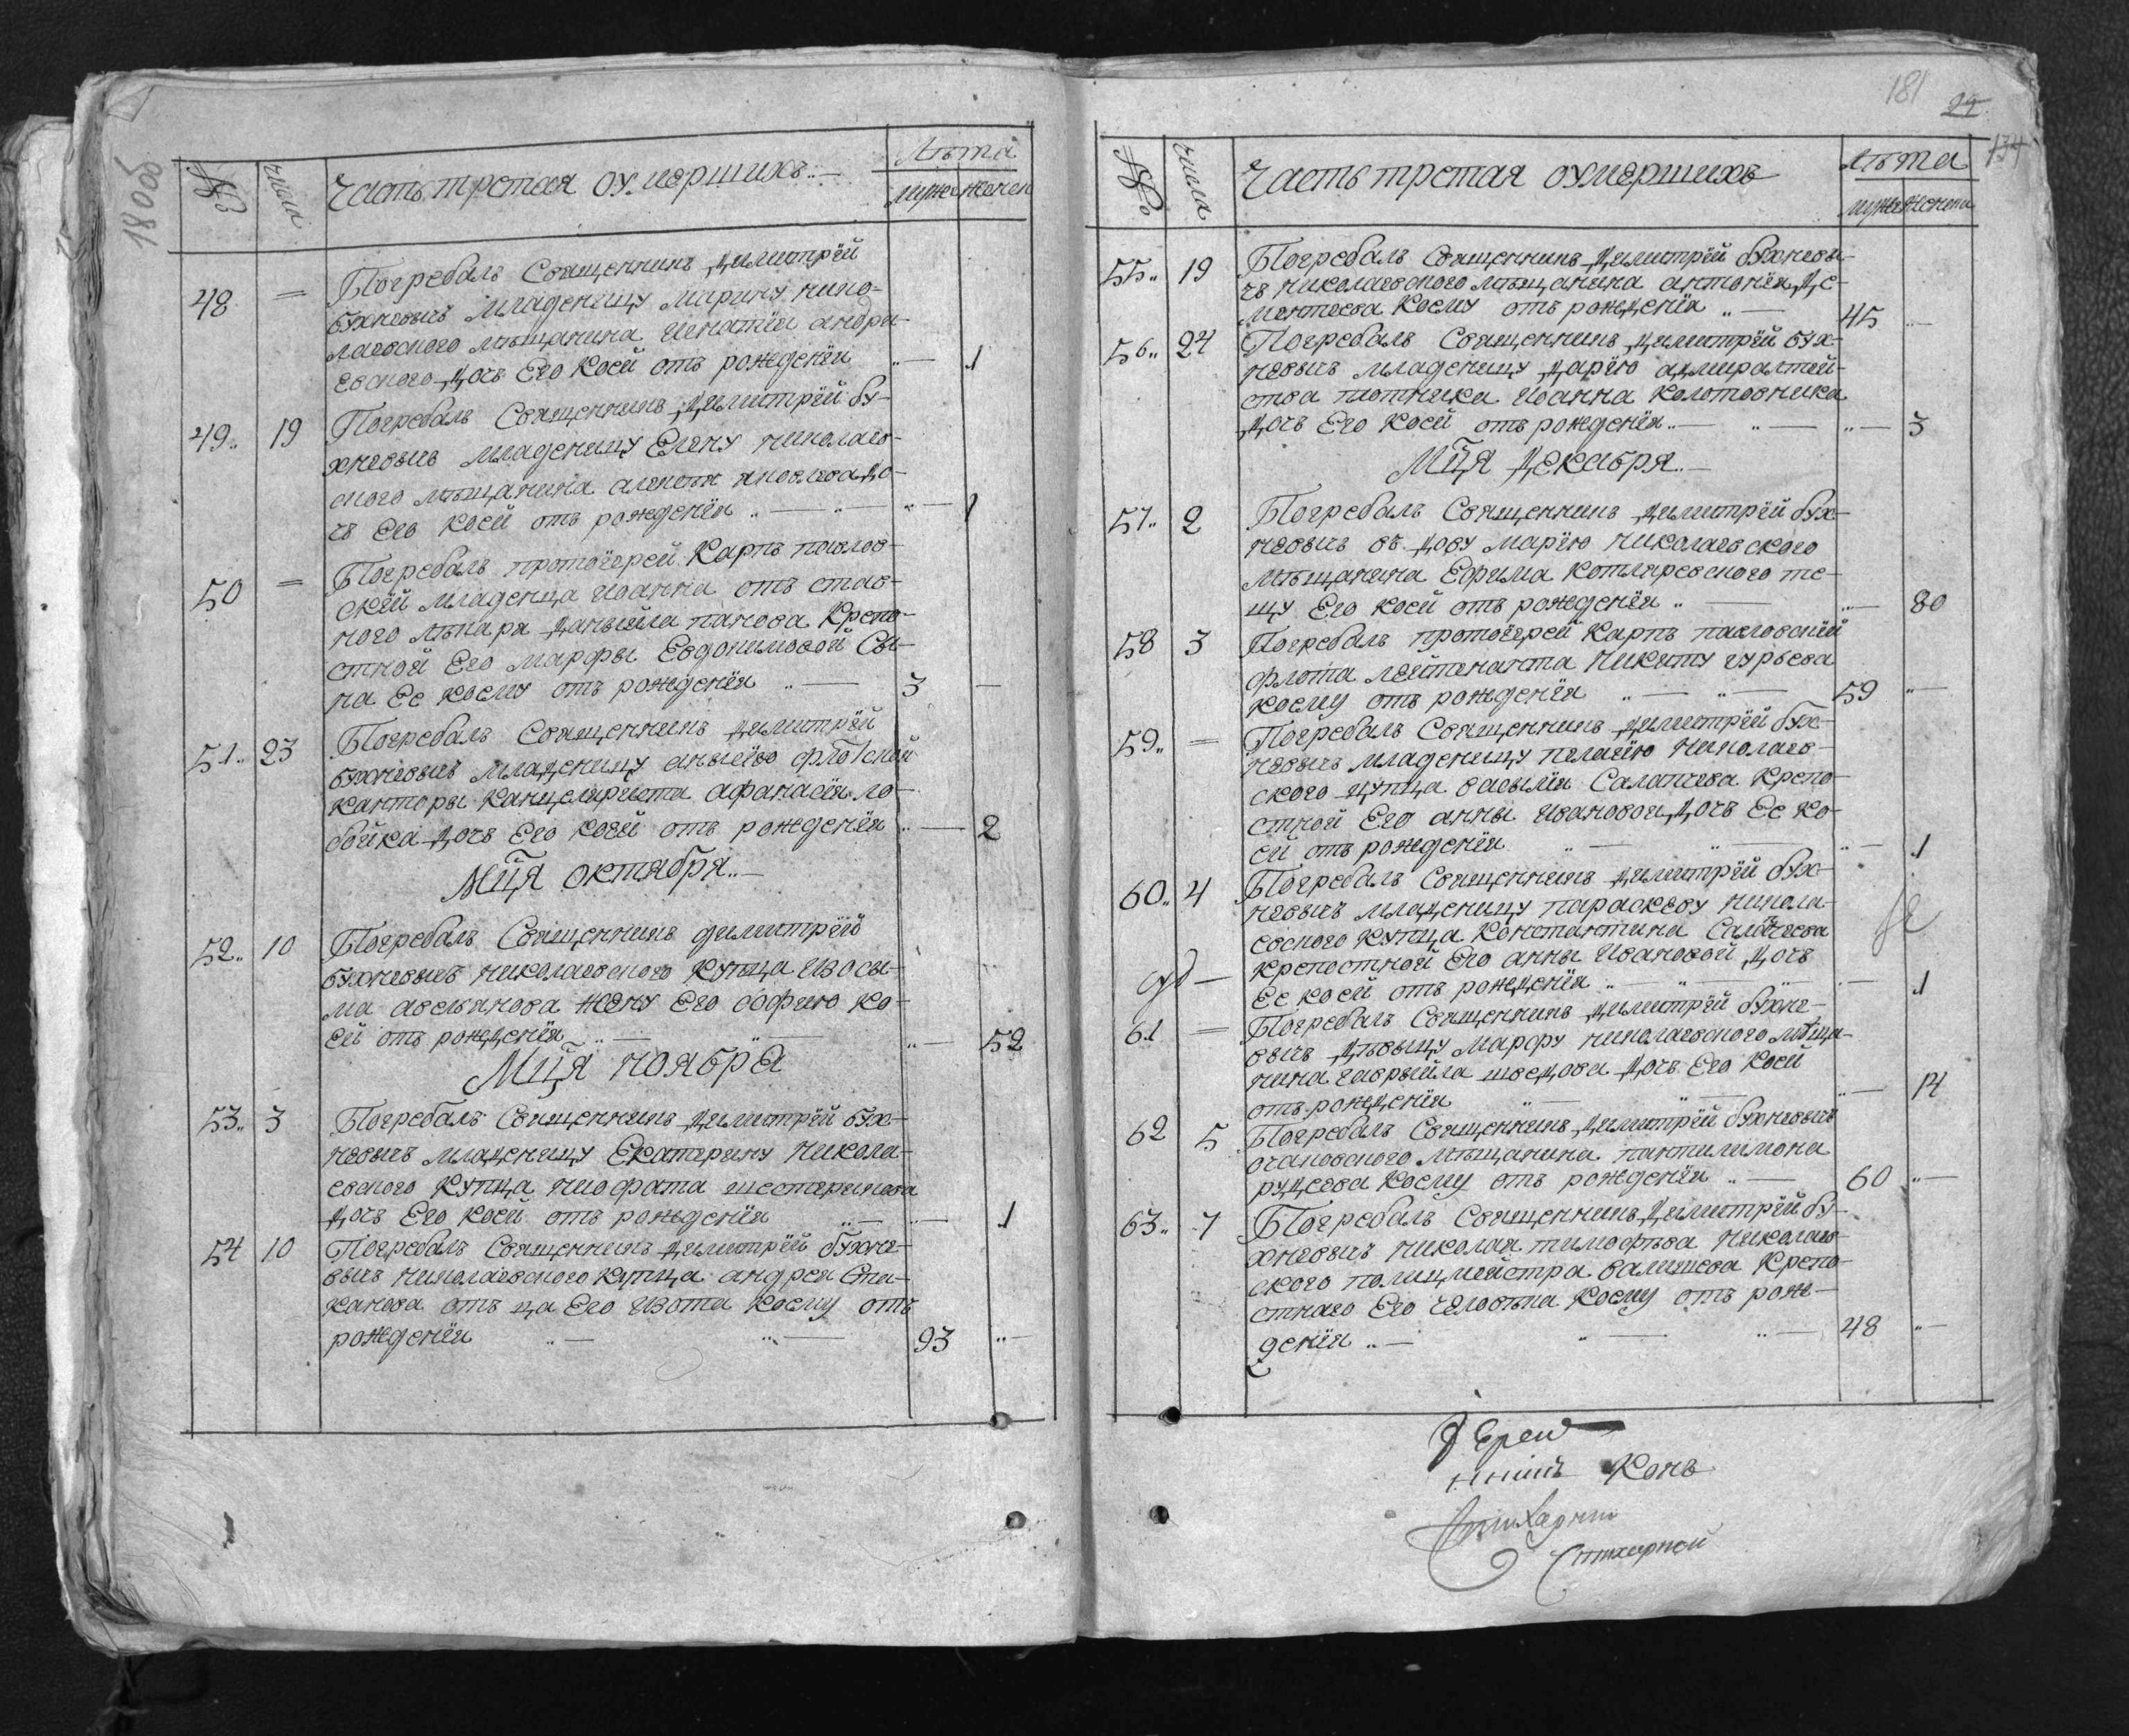 180об
№ числа Часть третая оумершихъ Лѣта
муже женск
48 Погребалъ Священникъ Димитрїй
бухневичъ младеницу Марину нико-
лаевского мѣщанина игнатїя андри-
евского дочь Его коей отъ рожденїя 1
49 19 Погребалъ Священникъ Димитрїй бу-
хневичъ младеницу Елену николаев-
ского мѣщанина алексѣя яковлева до-
чь Его коей отъ рожденїя 1
50 Погребалъ протоїерей Карпъ павлов-
скїй младенца иоанна отъ став-
ного лѣкаря даныила панова Крепо-
стной Его марфы Евдокимовой Сы-
на Ее коему отъ рожденїя 3
51 23 Погребалъ Священникъ Димитрїй
бухневичъ младеницу анысїю флотской
канторы канцеляриста афанасїя ло-
бойка дочь Его коей отъ рожденїя 2
Мця октября
52 10 Погребалъ Священникъ димитрїй
бухневичъ николаевского купца Изосы-
ма авсянова жену Его софию ко-
ей отъ рожденїя 52
Мця ноября
53 3 Погребалъ Священникъ Димитрїй бух-
невичъ младеницу Екатерину никола-
евского купца ниофата шестерикова
дочь Его коей отъ рожденїя 1
54 10 Погребалъ Священникъ Димитрїй бухне-
вичъ николаевского купца андрея Ста-
канова отъ ца Его Изота коему отъ
рожденїя 93
181 24
134
№ числа Часть третая оумершихъ лѣта
муже женска
55 19 Погребалъ Священникъ Димитрїй бухневи-
чъ николаевского мѣщанина антонїя де-
ментьева коему отъ рожденїя 45
56 24 Погребалъ Священникъ Димитрїй бух-
невичъ младеницу дарїю адмиралтей-
ства плотника иоанна колотовника
дочь Его коей отъ рожденїя 3
Мця Декабря
57 2 Погребалъ Священникъ Димитрїй бух-
невичъ въдову марїю николаевского
мѣщанина Ефима котляревского те-
щу Его коей отъ рожденїя 80
58 3 Погребалъ протоїерей Карпъ павловскїй
флота лейтенанта никиту гурьева
коему отъ рожденїя 59
59 Погребалъ Священникъ Димитрїй бух-
невичъ младеницу пелагїю николаев-
ского купца васылїя Салапчева крепо-
стной Его анны ивановой дочь Ее ко-
ей отъ рожденїя 1
60 4 Погребалъ Священникъ Димитрїй бух-
невичъ младеницу параскеву никола-
евского купца константина Салапчева
крепостной Его анны ивановой дочь
Ее коей отъ рожденїя 1
61 Погребалъ Священникъ Димитрїй бухне-
вичъ дѣвыцу марфу николаевского мѣща-
нина гаврыйла шведова дочь Его коей
отъ рожденїя 14
62 5 Погребалъ Священникъ Димитрїй бухневичъ
очаковского мѣщанина пантилимона
рудсева коему отъ рожденїя 60
63 7 Погребалъ Священникъ Димитрїй бу-
хневичъ николая тимофѣва николаев
ского полицмейстра валишева крепо-
стнаго Его человѣка коему отъ рож-
денїя 48
Їерей